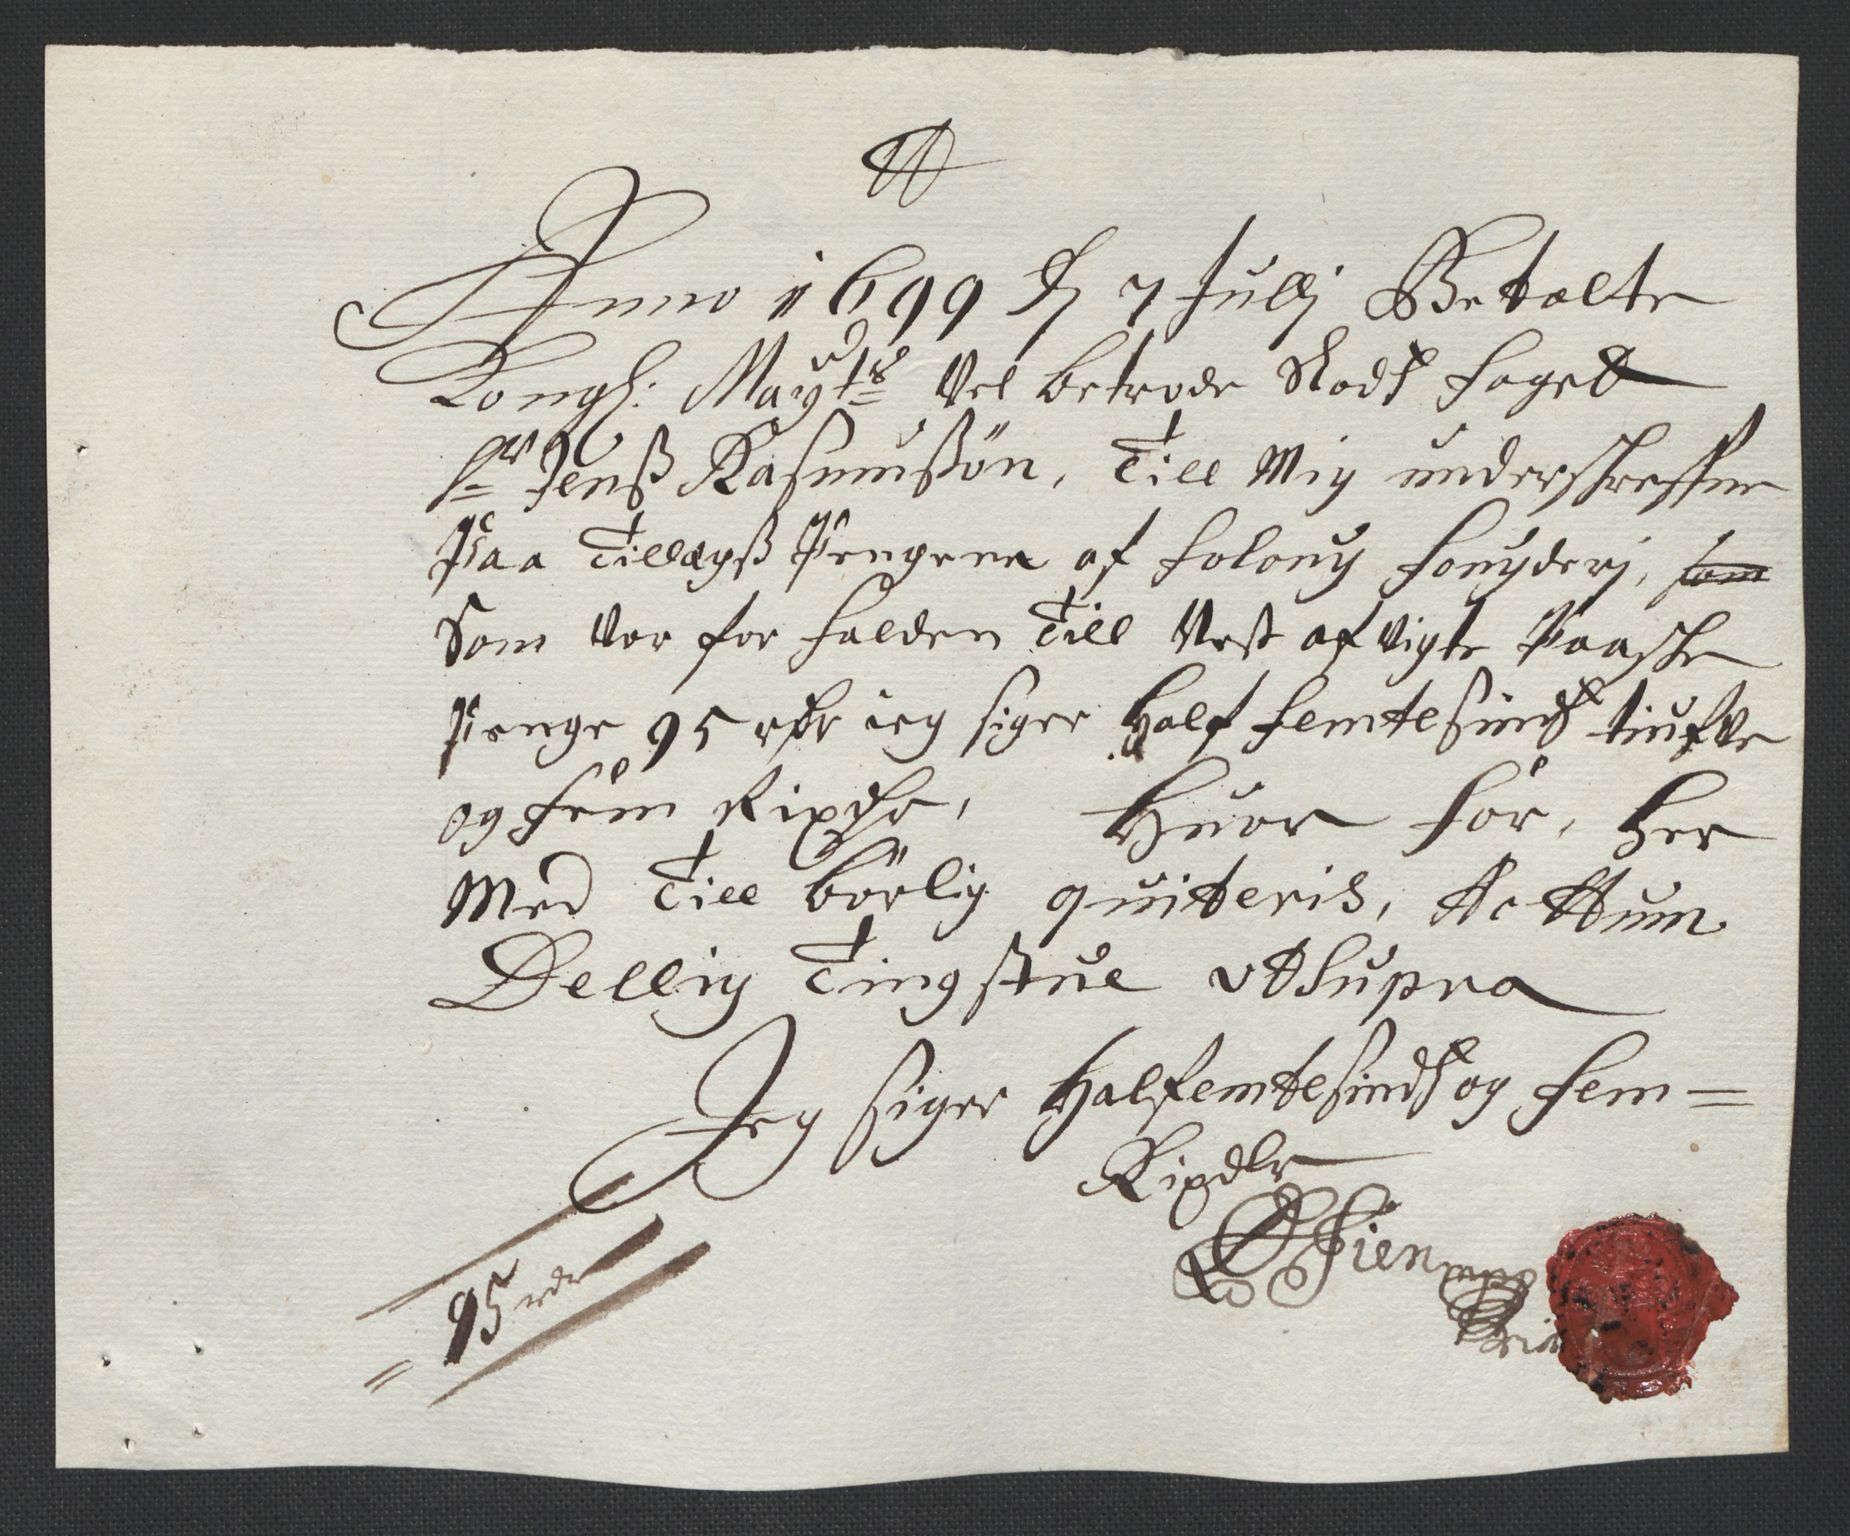 Anno 1699 d 7 Julij Betalte
Kongl: Maytts Vel betrode Stads faget
Hr Jenß Rasmußön, Till Mig underschreffne
Paa Tillægß Pengene af Foloug Fougderj, som
Som Vor for falden Till Nest afvigte Paasche
Penge 95 rdr ieg siger Half femtesinds tiufve
og fem Rixdr, Huor for, her
Med Till börlig quiteris, Actum
Dellig Tingstue ut Supra
Jeg siger Halfemtesinds og fem=
Rixdlr
Fien
mpp
95 rdr